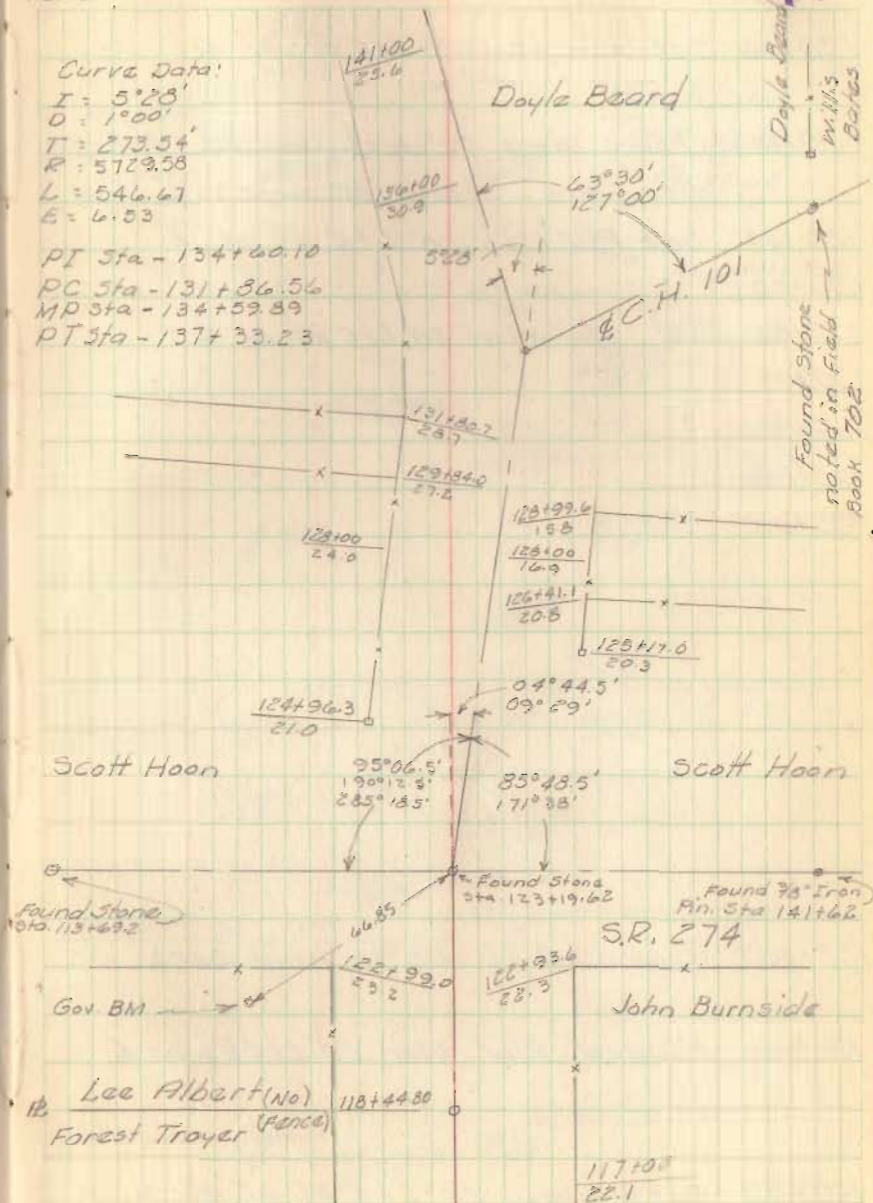 Curve Data:
I = 5°28'
D = 1°00'
T = 273.54'
R = 5729.58
L = 546.67
E = 6.53
PI Sta - 134+60.10
PC Sta - 131+86.56
MP Sta - 134+59.89
PT Sta - 137+33.23
141+00
25.6
Doyle Beard
Doyle Beard
Willis
Bates
136+00
30.9
63°30'
127°00'
5°28'
℄ C.H. 101
Found Stone
noted in Field
Book 702
131+80.7
28.7
129+84.0
27.2
128+00
24.0
128+99.6
15.8
128+00
16.9
126+41.1
20.8
125+17.0
20.3
124+96.3
21.0
04°44.5'
09°29'
Scott Hoon
95°06.5'
190°12.5'
285°18.5'
85°48.5'
171°38'
Scott Hoon
Found Stone
Sta. 113+69.2
Found Stone
Sta. 123+19.62
Found 3/8" Iron
Pin. Sta 141+62
66.85
S.R. 274
122+99.0
23.2
122+93.6
22.3
Gov. BM
John Burnside
℄ Lee Albert (No)
118+44.80
Forest Troyer (Fence)
117+0
22.1